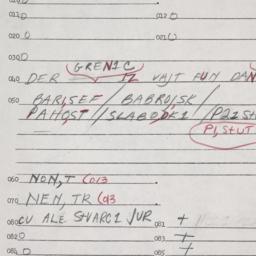 010
012
020
021
030
GRENIC
040 DER IZ VAJT FUN DAN
050 BARISEF / BABROJSK
PAHOST / SLABODKI / PZZSH
PISHUT
060 NON, T (013
070 NEN, TR (93
080 CU ALE SHVARCI JUR 081 +
082 083 +
084 085 +